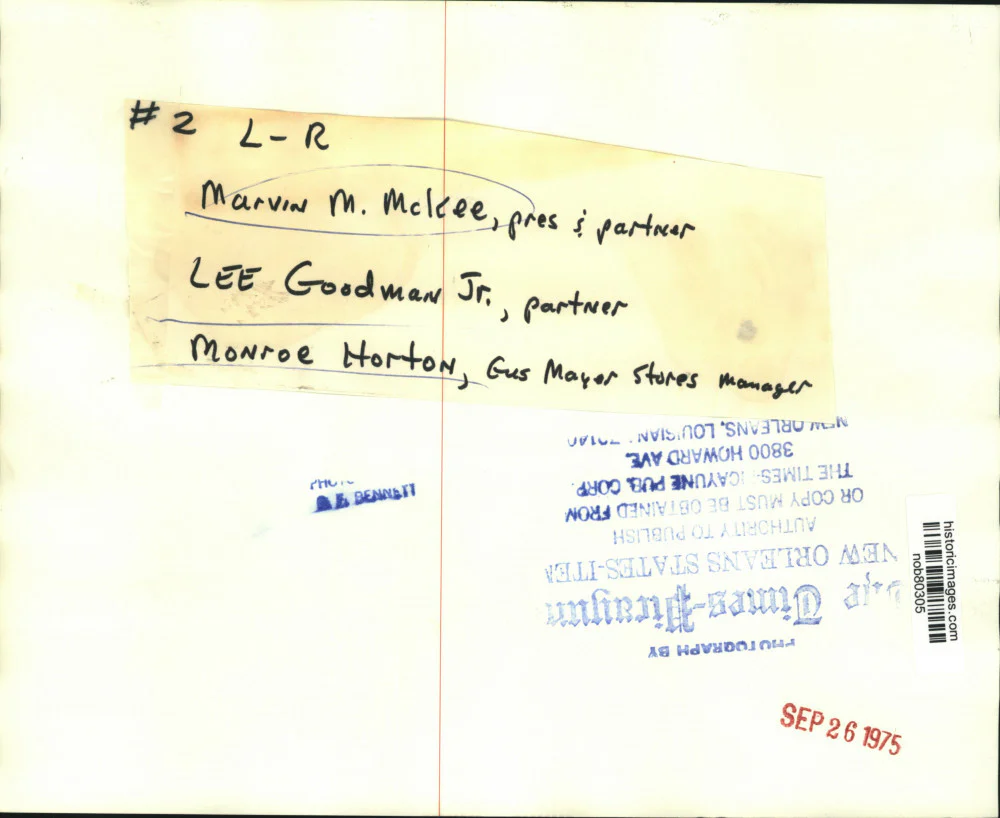 # 2 L-R
Marvin M. McKee, pres & partner
LEE Goodman Jr., partner
Monroe Horton, Gus Mayer Stores manager
BENNETT
PHOTOGRAPH BY
The Times-Picayun
NEW ORLEANS STATES-ITEM
AUTHORITY TO PUBLISH
OR COPY MUST BE OBTAINED FROM
THE TIMES-PICAYUNE PUB. CORP.
3800 HOWARD AVE.
NEW ORLEANS, LOUISIANA 70140
historicimages.com
nob80305
SEP 26 1975